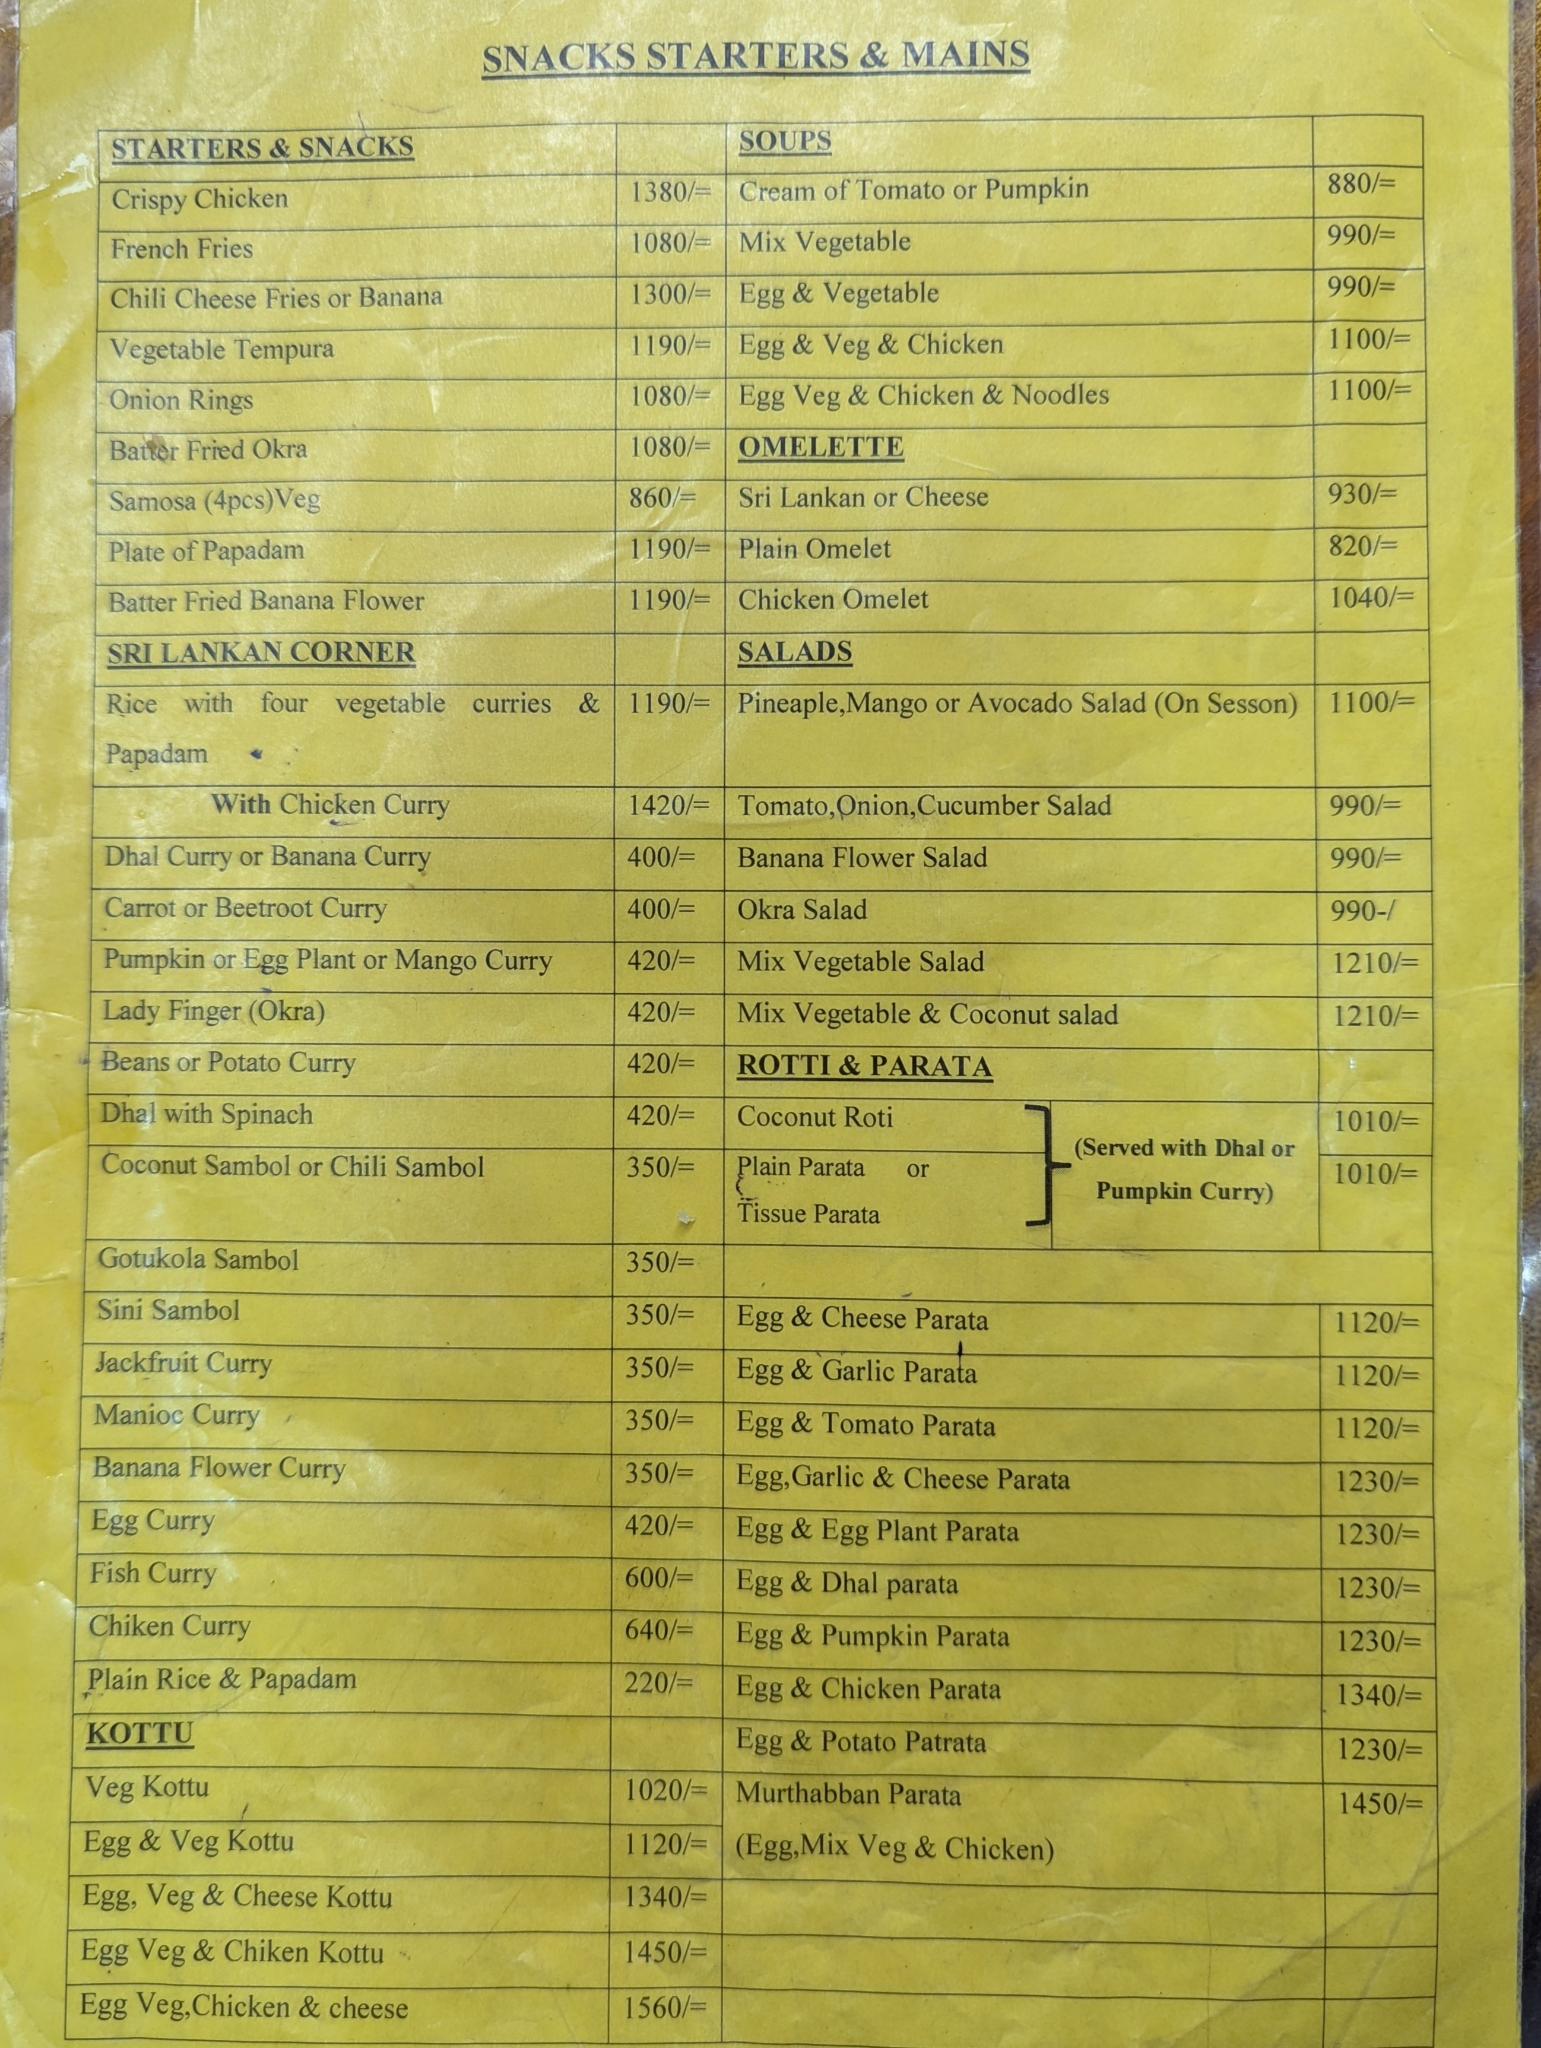 SNACKS STARTERS & MAINS
STARTERS & SNACKS
Crispy Chicken 1380/=
French Fries 1080/=
Chili Cheese Fries or Banana 1300/=
Vegetable Tempura 1190/=
Onion Rings 1080/=
Batter Fried Okra 1080/=
Samosa (4pcs)Veg 860/=
Plate of Papadam 1190/=
Batter Fried Banana Flower 1190/=
SRI LANKAN CORNER
Rice with four vegetable curries & 1190/=
Papadam
With Chicken Curry 1420/=
Dhal Curry or Banana Curry 400/=
Carrot or Beetroot Curry 400/=
Pumpkin or Egg Plant or Mango Curry 420/=
Lady Finger (Okra) 420/=
Beans or Potato Curry 420/=
Dhal with Spinach 420/=
Coconut Sambol or Chili Sambol 350/=
Gotukola Sambol 350/=
Sini Sambol 350/=
Jackfruit Curry 350/=
Manioc Curry 350/=
Banana Flower Curry 350/=
Egg Curry 420/=
Fish Curry 600/=
Chiken Curry 640/=
Plain Rice & Papadam 220/=
KOTTU
Veg Kottu 1020/=
Egg & Veg Kottu 1120/=
Egg, Veg & Cheese Kottu 1340/=
Egg Veg & Chiken Kottu 1450/=
Egg Veg,Chicken & cheese 1560/=
SOUPS
Cream of Tomato or Pumpkin 880/=
Mix Vegetable 990/=
Egg & Vegetable 990/=
Egg & Veg & Chicken 1100/=
Egg Veg & Chicken & Noodles 1100/=
OMELETTE
Sri Lankan or Cheese 930/=
Plain Omelet 820/=
Chicken Omelet 1040/=
SALADS
Pineaple,Mango or Avocado Salad (On Sesson) 1100/=
Tomato,Onion,Cucumber Salad 990/=
Banana Flower Salad 990/=
Okra Salad 990-/
Mix Vegetable Salad 1210/=
Mix Vegetable & Coconut salad 1210/=
ROTTI & PARATA
Coconut Roti 1010/=
Plain Parata or 1010/=
Tissue Parata
(Served with Dhal or
Pumpkin Curry)
Egg & Cheese Parata 1120/=
Egg & Garlic Parata 1120/=
Egg & Tomato Parata 1120/=
Egg,Garlic & Cheese Parata 1230/=
Egg & Egg Plant Parata 1230/=
Egg & Dhal parata 1230/=
Egg & Pumpkin Parata 1230/=
Egg & Chicken Parata 1340/=
Egg & Potato Patrata 1230/=
Murthabban Parata 1450/=
(Egg,Mix Veg & Chicken)